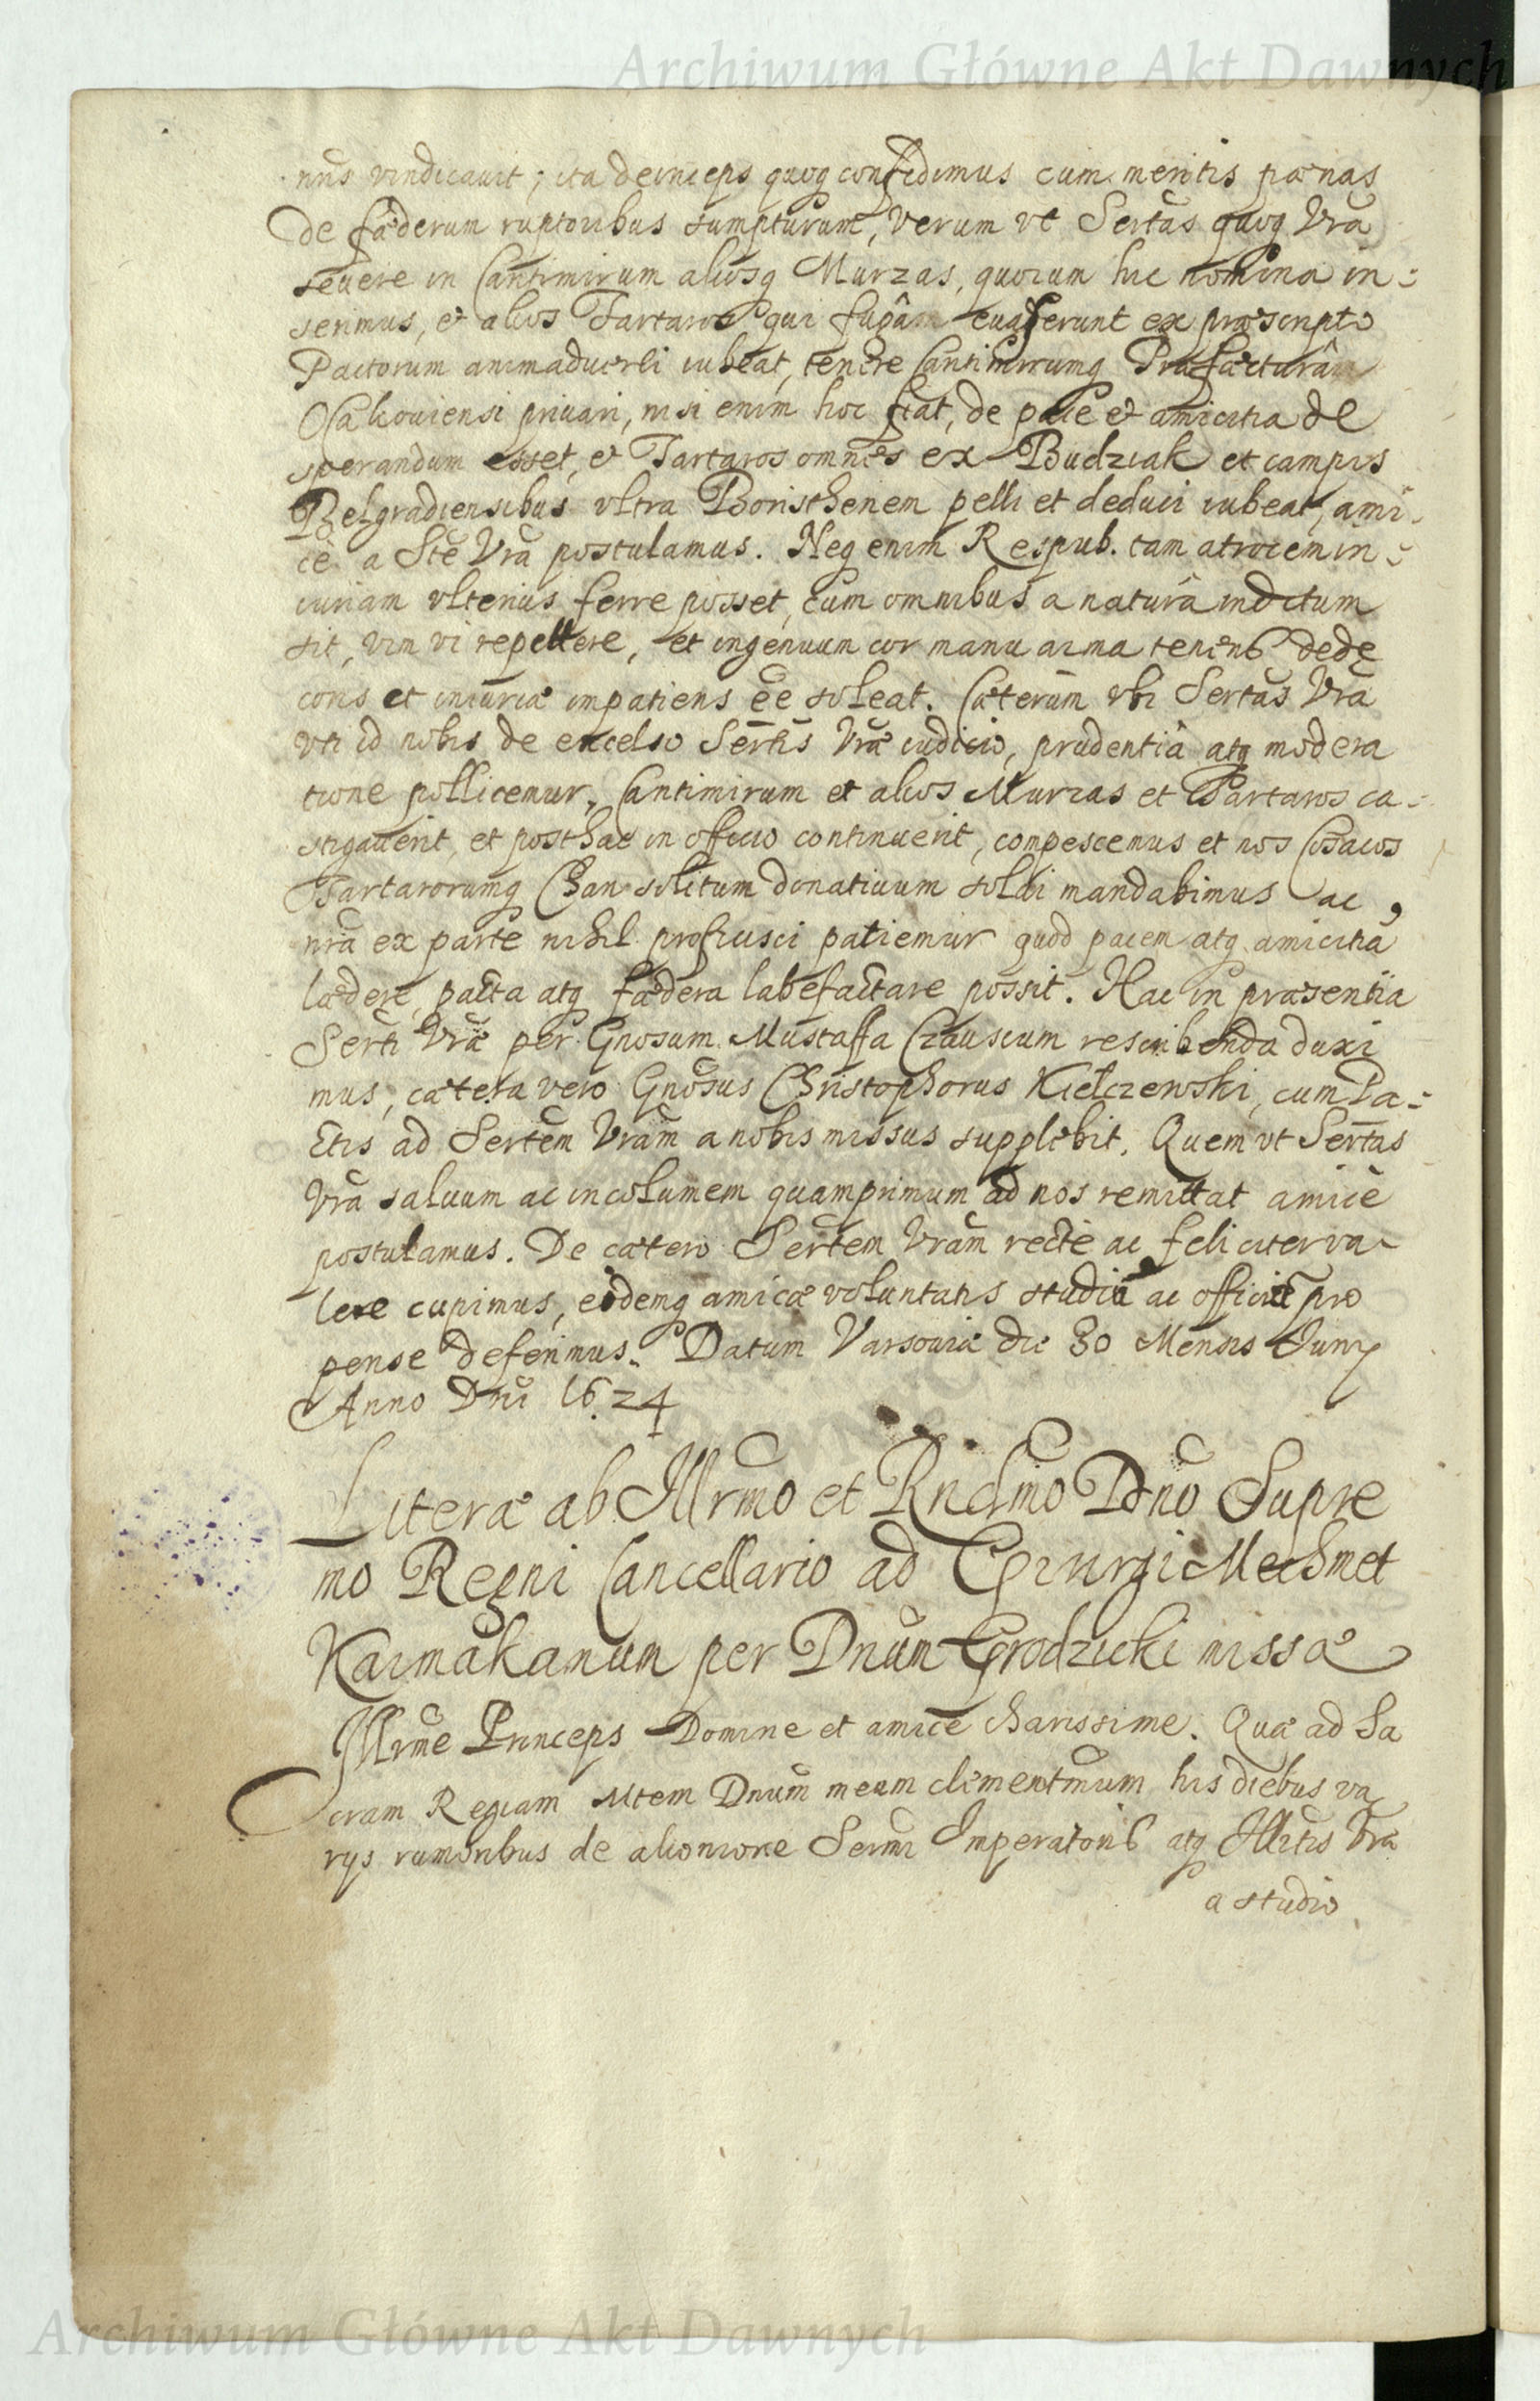 Archiwum Główne Akt Dawnych
nus vindicauit; ita deinceps quoq confidimus cum meritis pœnas
de fœderum ruptoribus sumpturum, verum vt Sertas quoq Vrã
seuere in Cantimirum aliosq Murzas, quorum hic nomina in=
serimus, et alios Tartaros qui fugâ euaserunt ex præscripto
Pactorum animaduerti iubeat, Cantimirumq Præfecturâ
Oczakouiensi priuari, nisi enim hoc fiat, de pace et amicitia de
sperandum esset, et Tartaros omnes ex Budziak et campis
Belgradiensibus vltra Boristhenem pelli et deduci iubeat, ami=
cè a Ste Vrã postulamus. Neq enim Respub. tam atrocem in=
iuriam vlterius ferre posset, cum omnibus a naturâ inditum
sit, vim vi repellere, et ingenuum cor manu arma tenens dede
coris et iniuriæ impatiens ee soleat. Cæterum vbi Sertas Vrã
vti id nobis de excelso Sertis Vræ iudicio, prudentiâ atq modera
tione pollicemur, Cantimirum et alios Murzas et Tartaros ca=
stigauerit, et posthac in officio continuerit, compescemus et nos Cosacos
Tartarorumq Chan solitum donatiuum solui mandabimus ac
nrã ex parte nihil proficisci patiemur quod pacem atq amicitiã
lædere, pacta atq fœdera labefactare possit. Hac in præsentia
Serti Vræ per Gnosum Mustaffa Czausium rescribenda duxi
mus, cætera vero Gnosus Christophorus Kiełczewski, cum Pa=
ctis ad Sertem Vram a nobis missus supplebit. Quem vt Sertas
Vrã saluum ac incolumem quamprimum ad nos remittat amicè
postulamus. De cætero Sertem Vram rectè ac feliciter va
lere cupimus, eidemq amicæ voluntatis studia ac officia pro
pense deferimus. Datum Varsouiæ die 30 Mensis Juny
Anno Dni 1624
Literæ ab Illrmo et Rndmo Dno Supre
mo Regni Cancellario ad Giurgi Mechmet
Kaimakanum per Dnum Grodzicki missæ
Illrme Princeps Domine et amice charissime. Quæ ad Sa
cram Regiam Mtem Dnum meum clementmum his diebus va
rys rumoribus de alieniore Sermi Imperatoris atq Illtis Vræ
a studio
Archiwum Główne Akt Dawnych